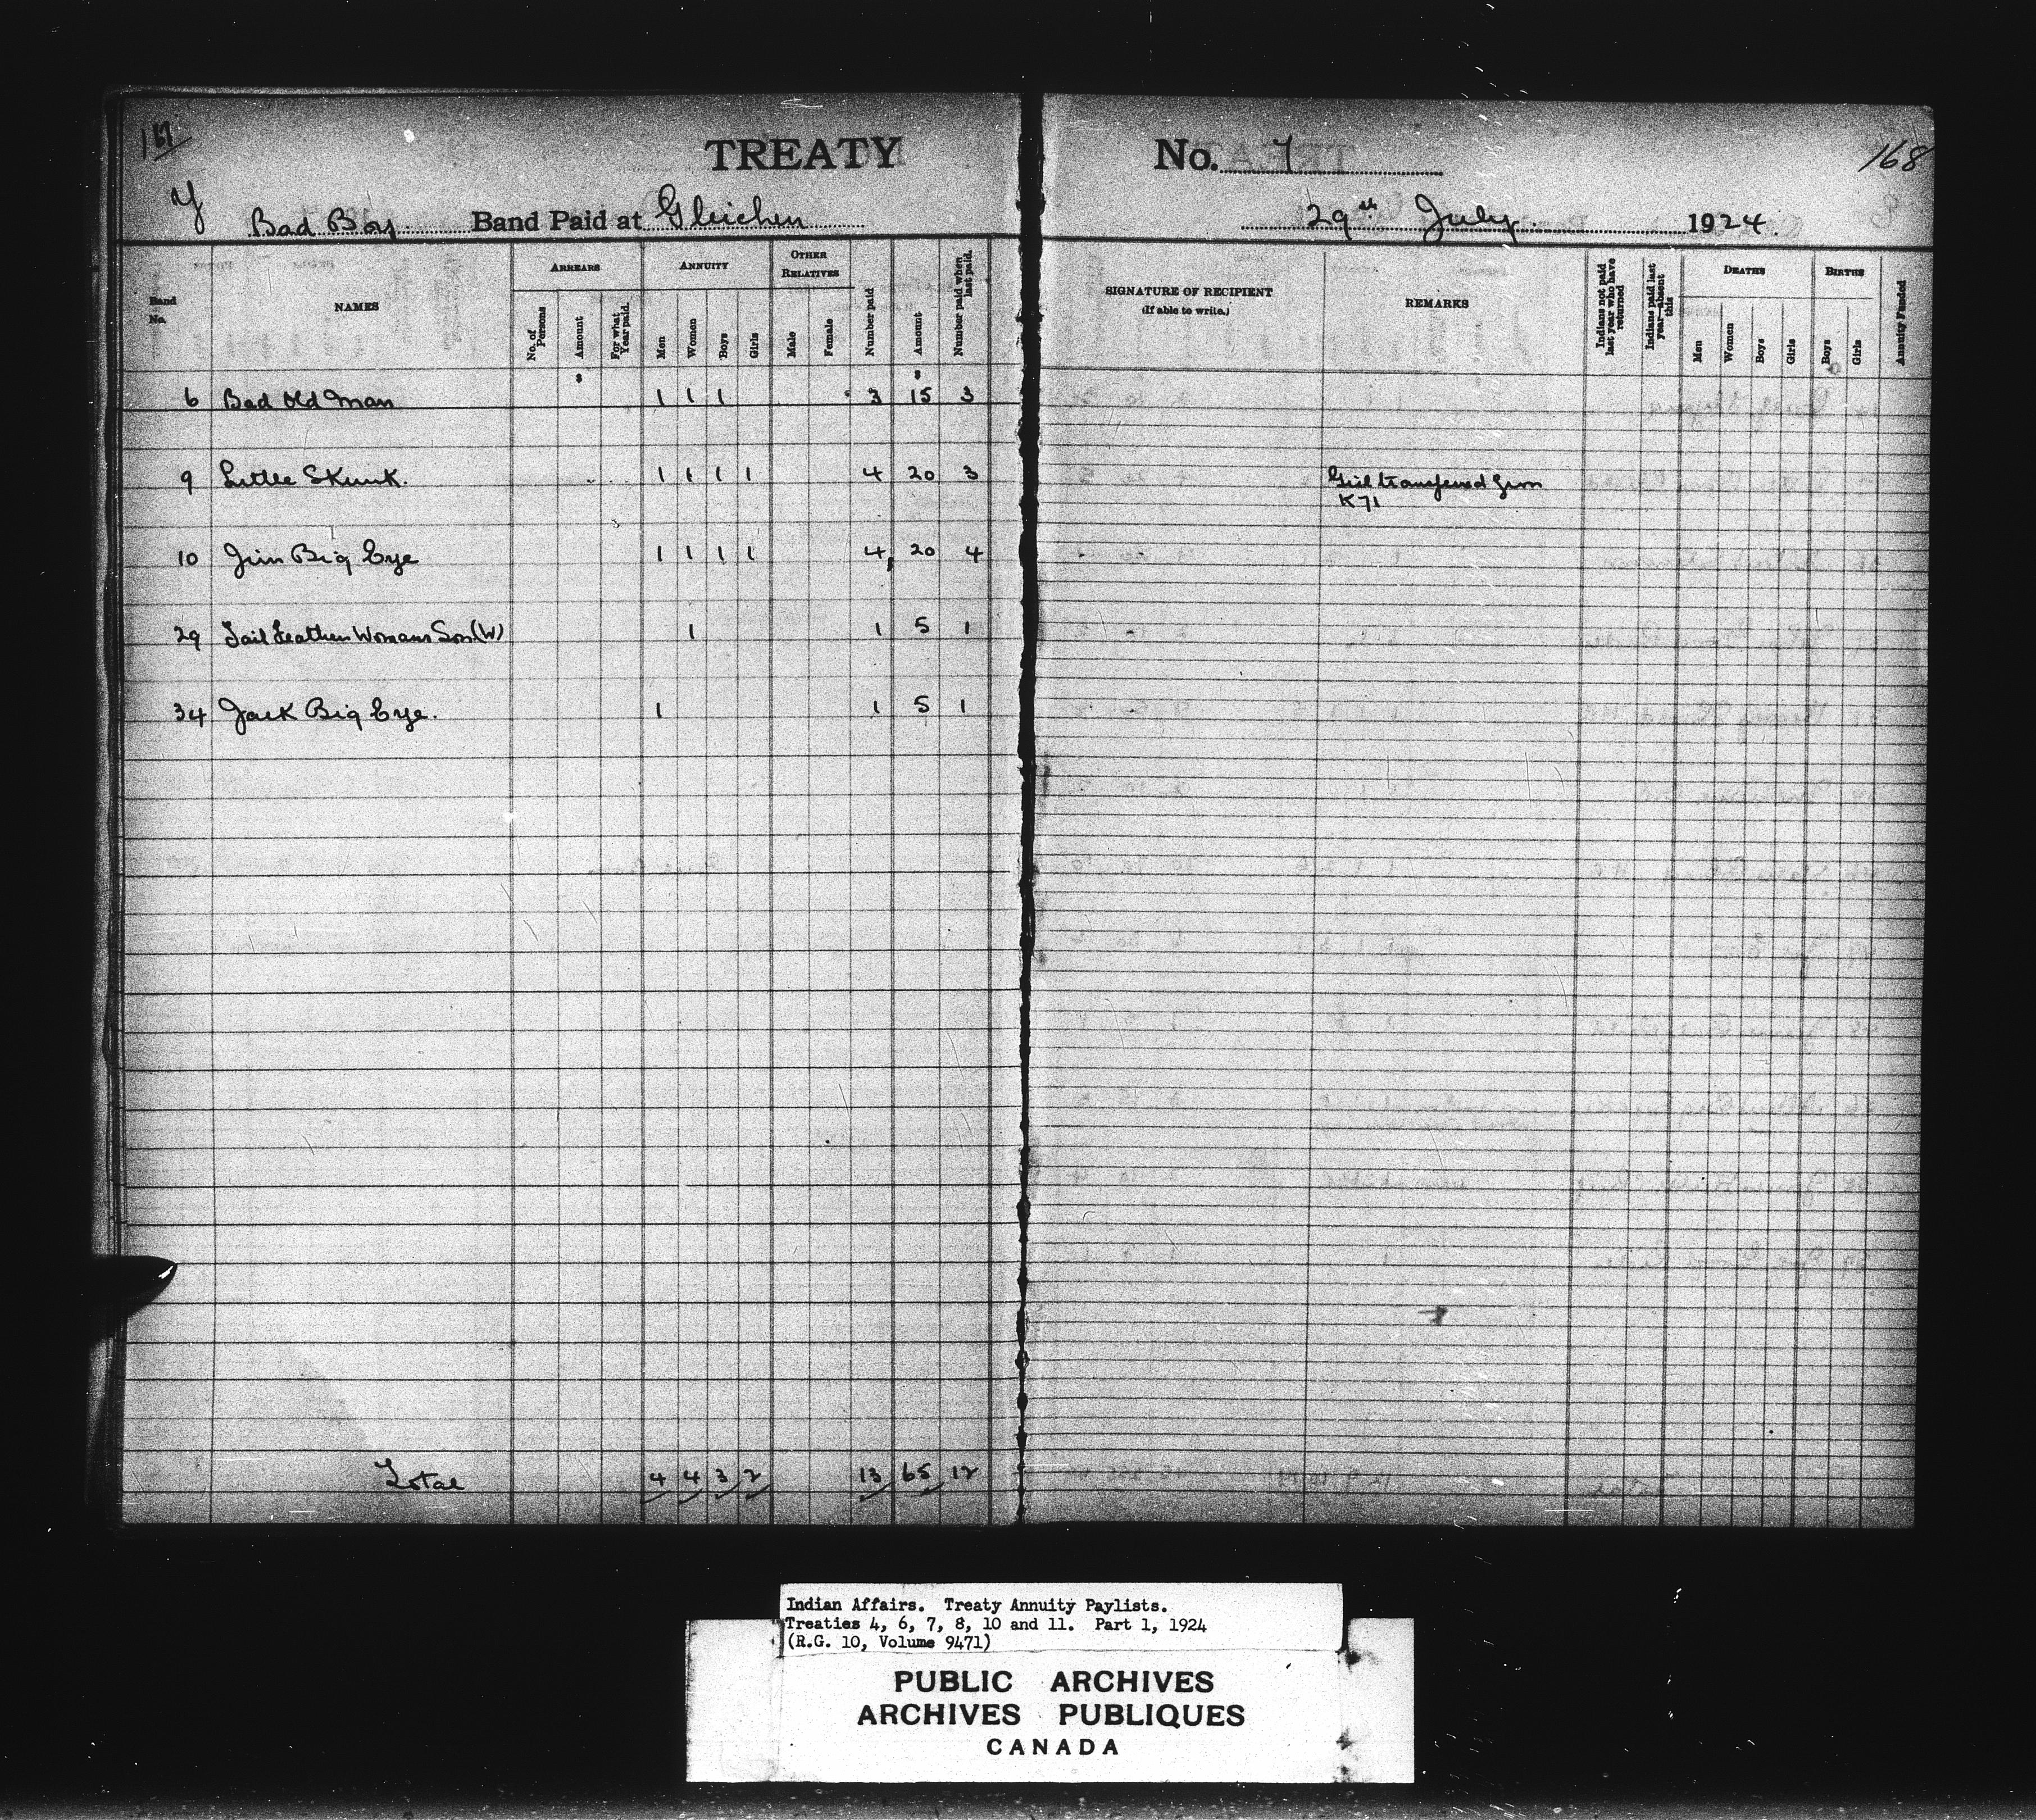 167 TREATY No. 7 168
Y Bad Boy Band Paid at Gleichen 29th July 1924.
Band No. NAMES ARREARS ANNUITY OTHER RELATIVES Number paid Amount Number paid when last paid. SIGNATURE OF RECIPIENT (If able to write.) REMARKS Indians not paid last year who have returned Indians paid last year—absent this DEATHS BIRTHS Annuity Funded
No. of Persons Amount For what Year paid. Men Women Boys Girls Male Female Men Women Boys Girls Boys Girls
$ $
6 Bad Old Man 1 1 1 3 15 3
9 Little Skunk. 1 1 1 1 4 20 3 Girl transferred from
K71
10 Jim Big Eye 1 1 1 1 4 20 4
29 Tail Feathers Womans Son (W) 1 1 5 1
34 Jack Big Eye. 1 1 5 1
Total 4 4 3 2 13 65 12
Indian Affairs. Treaty Annuity Paylists.
Treaties 4, 6, 7, 8, 10 and 11. Part 1, 1924
(R.G. 10, Volume 9471)
PUBLIC ARCHIVES
ARCHIVES PUBLIQUES
CANADA